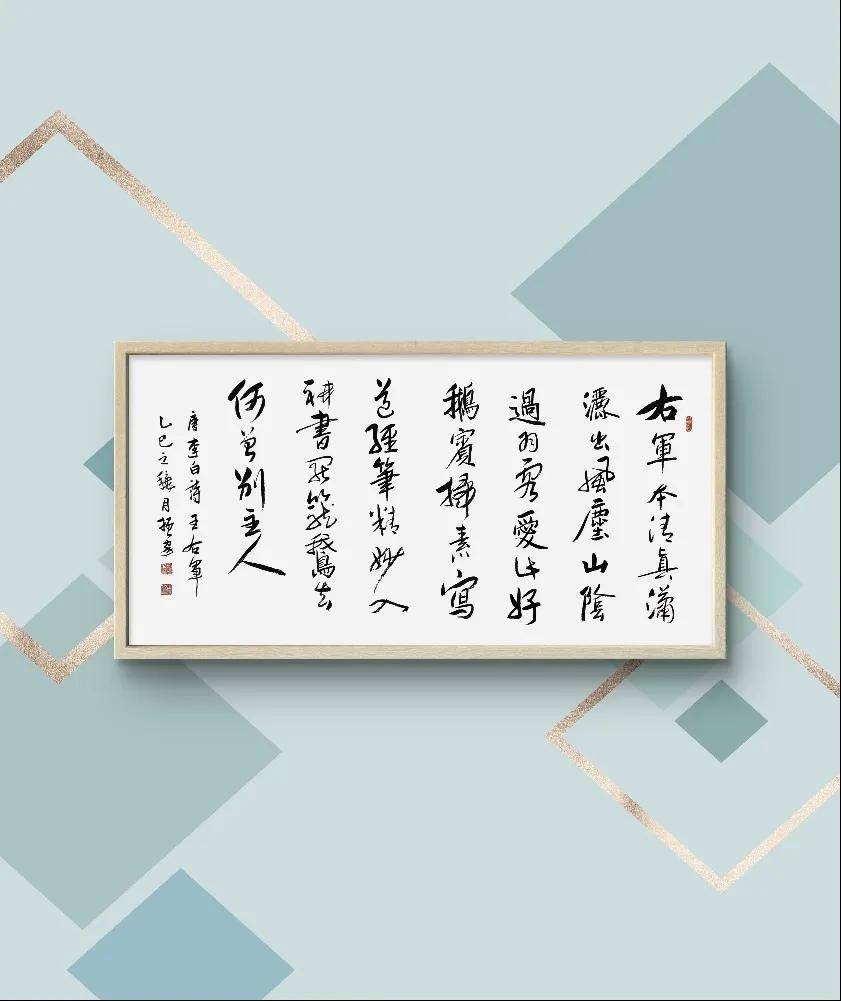 右軍本清真瀟
灑出風塵山陰
過羽客愛此好
鵝賓掃素寫
道經筆精妙入
神書罷籠鵝去
何曾別主人
唐李白詩王右軍
乙巳之穐月